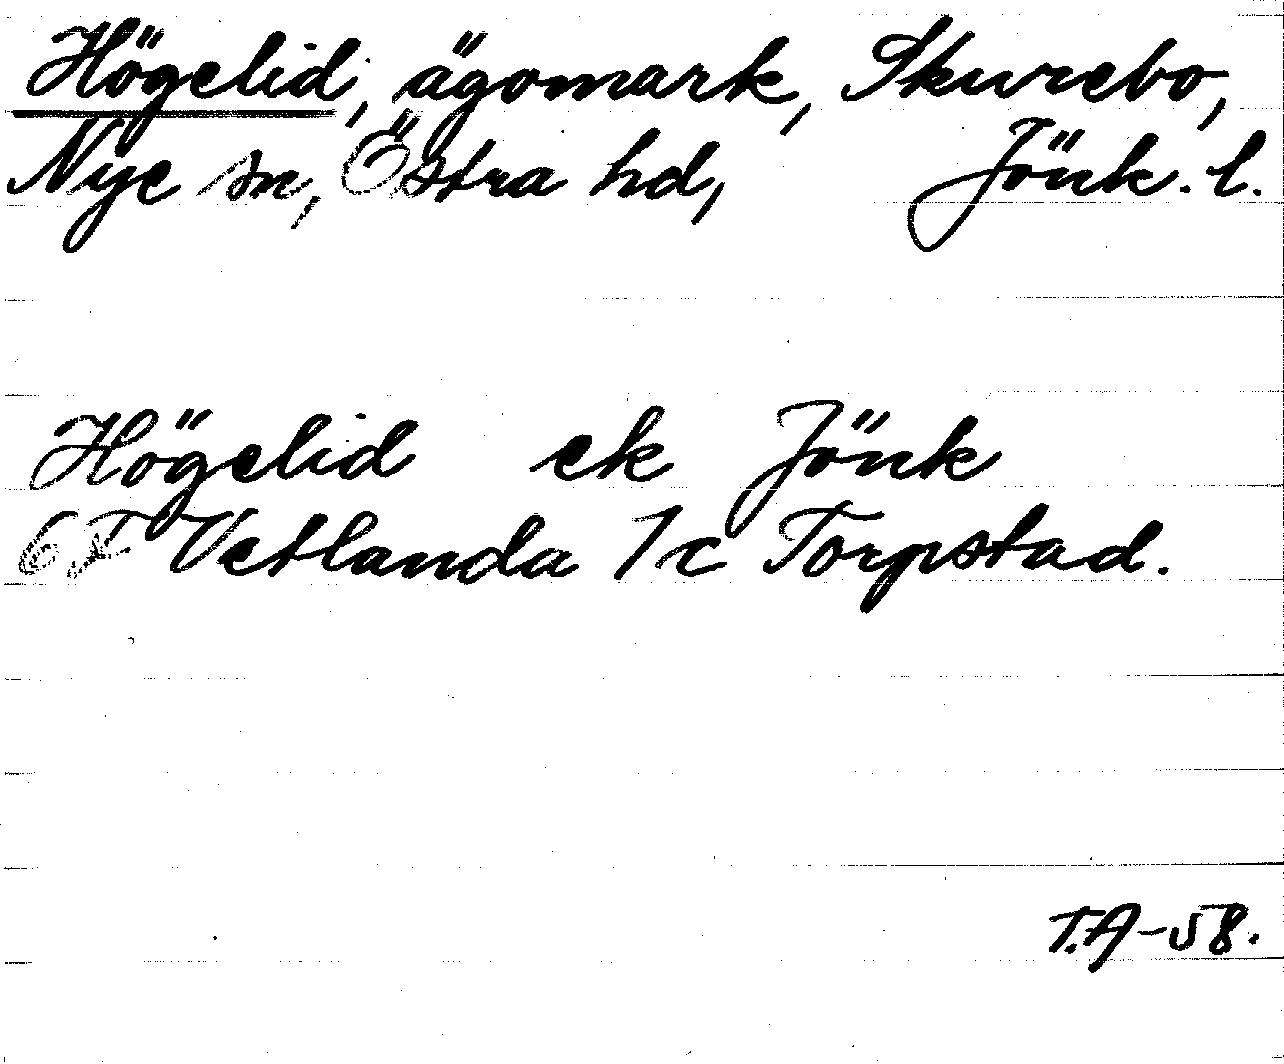 Högelid, ägomark, Skurebo,
Nye sn, Östra hd, Jönk. l.
Högelid ek Jönk
6F Vetlanda 7c Torpstad.
T.A-58.